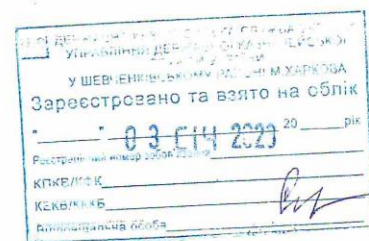 УПРАВЛІННЯ ДЕРЖАВНОЇ КАЗНАЧЕЙСЬКОЇ
У ШЕВЧЕНКІВСЬКОМУ РАЙОНІ М.ХАРКОВА
Зареєстровано та взято на облік
"____" 03 СІЧ 2023 20____рік
Реєстраційний номер
КПКВ/КФК
КЕКВ/ККБ
Відповідальна особа